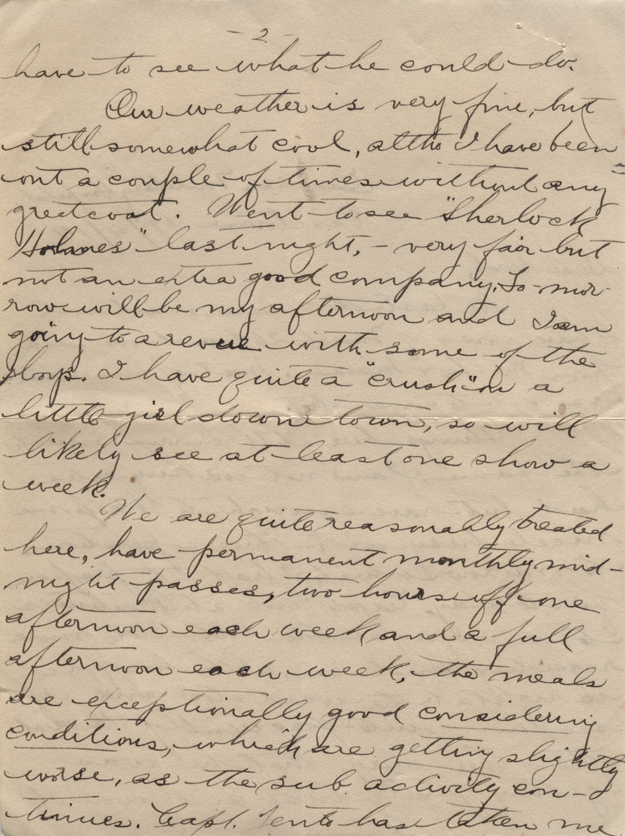 - 2 -
have to see what he could do.
Our weather is very fine, but
still somewhat cool, altho I have been
out a couple of times without any
greatcoat. Went to see "Sherlock
Holmes" last night, - very fair but
not an extra good company. To-mor-
row will be my afternoon and I am
going to a revue with some of the
boys. I have quite a "crush" on a
little girl down town, so will
likely see at least one show a
week.
We are quite reasonably treated
here, have permanent monthly mid-
night passes, two hours off one
afternoon each week and a full
afternoon each week, the meals
are exceptionally good considering
conditions, which are getting slightly
worse, as the sub. activity con-
tinues. Capt. has taken me